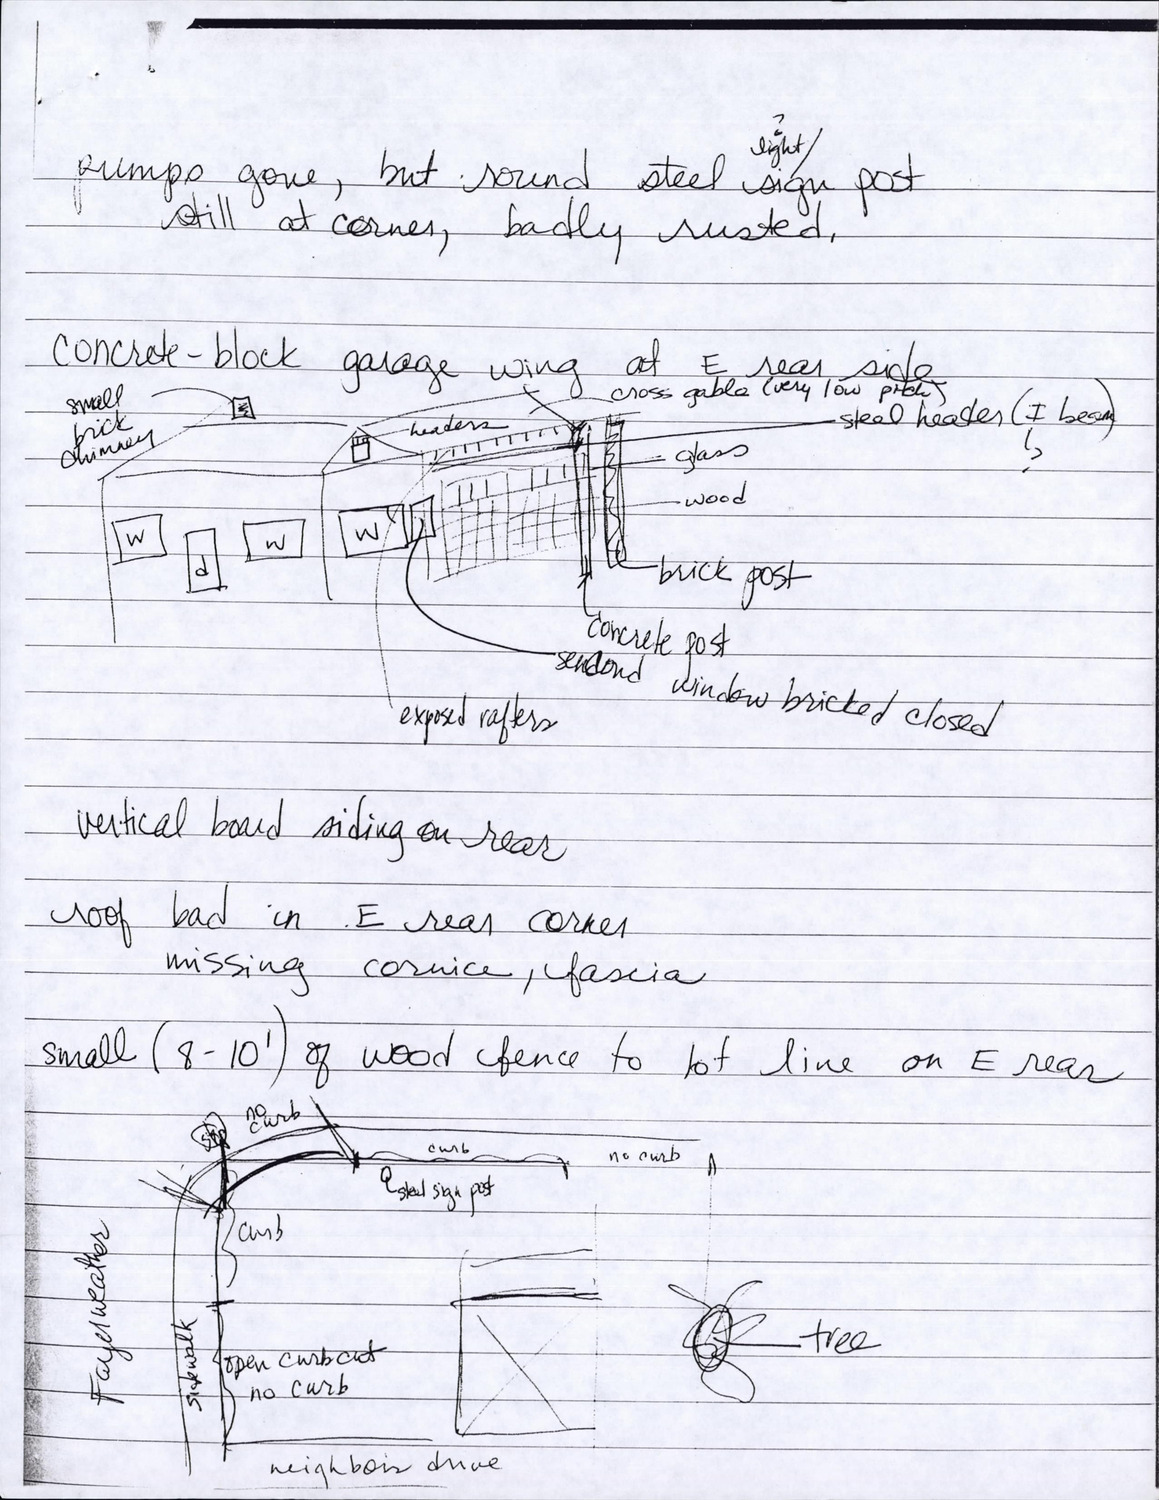 ?
light/
pumps gone, but round steel sign post
still at corner, badly rusted.
concrete-block garage wing at E rear side
cross gable (very low pitch)
small
brick
chimney
headers
steel header (I beam)
?
glass
wood
W
d
W
W
brick post
concrete post
window bricked closed
exposed rafters
vertical board siding on rear
roof bad in E rear corner
missing cornice, fascia
small (8-10') of wood fence to lot line on E rear
no
curb
stop
curb
no curb
steel sign post
curb
Fayerweather
sidewalk
open curbcut
no curb
tree
neighbors drive